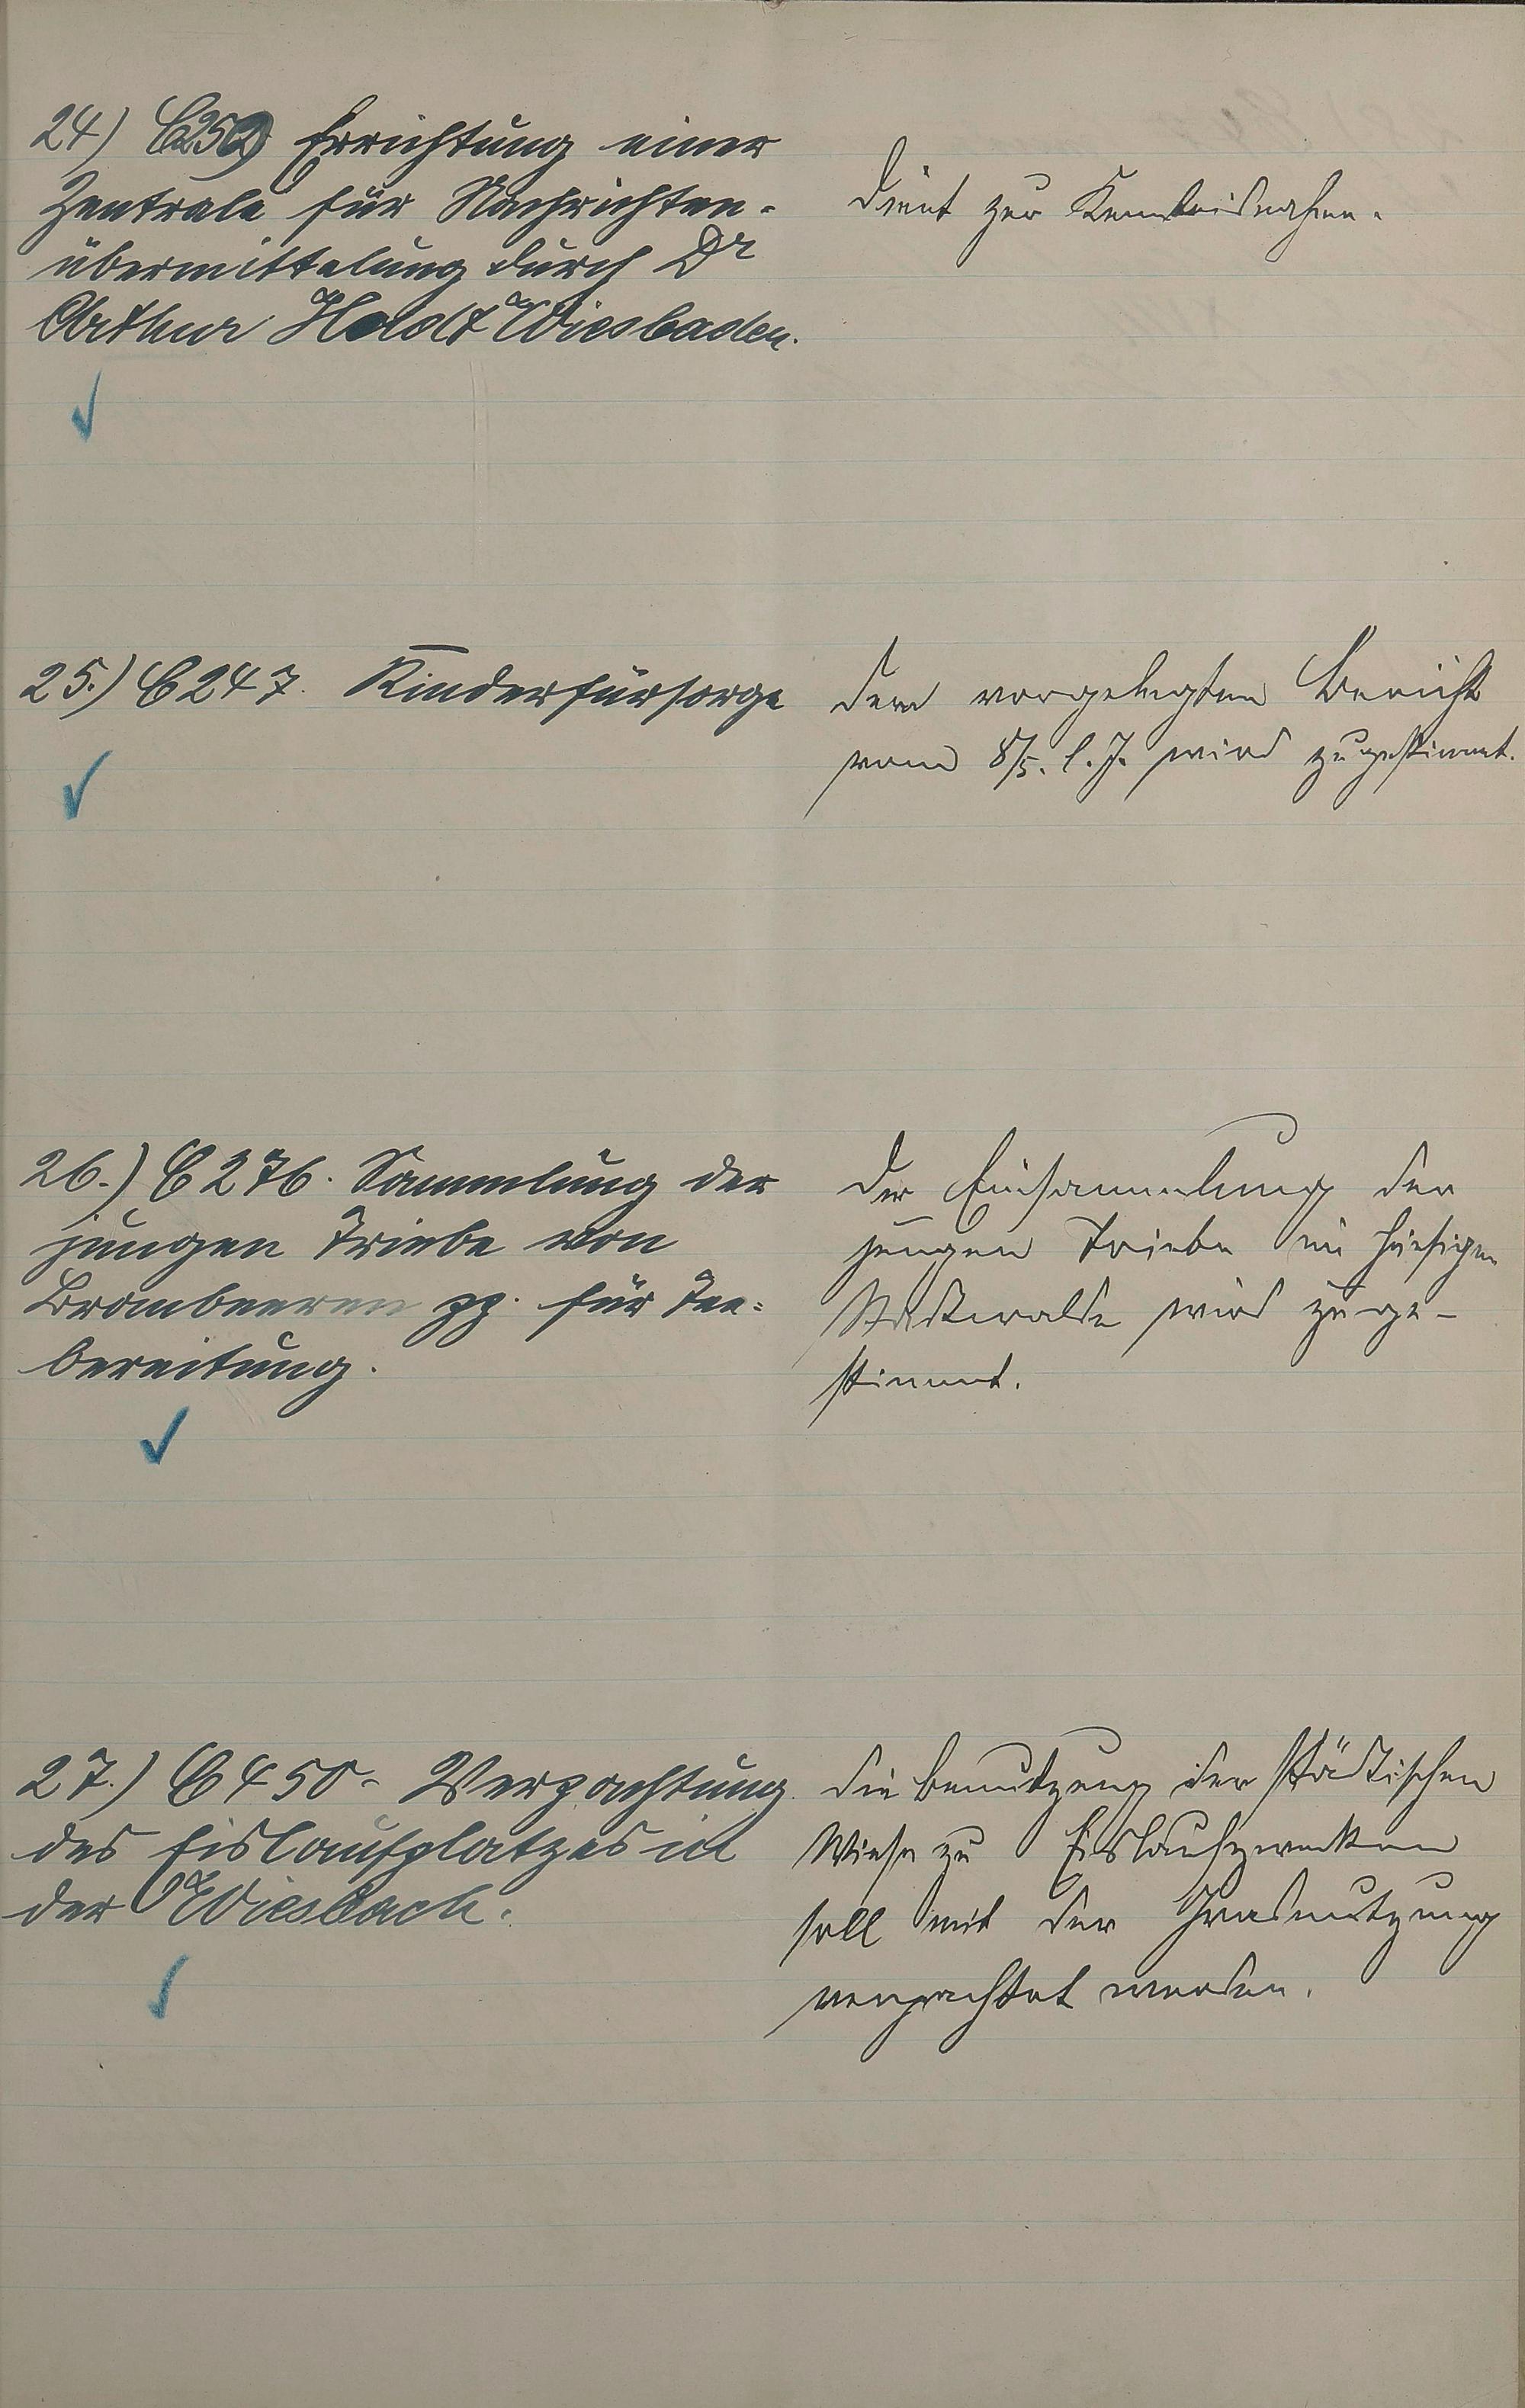 24) C 252 Errichtung einer
Zentrale für Nachrichten-
übermittelung durch Dr
Arthur Holdt Wiesbaden.
Dient zur Kenntnisnahme.
25.) C 247. Kinderfürsorge
Dem vorgelegten Bericht
vom 8/5. l. J. wird zugestimmt.
26.) C 276. Sammlung der
jungen Triebe von
Brombeeren pp. für Tee-
bereitung.
Der Einsammlung der
jungen Triebe im hiesigen
Stadtwalde wird zuge-
stimmt.
27.) C 450. Verpachtung
des Eislaufplatzes in
der Wiesbach.
Die Benutzung der städtischen
Wiese zu Eislaufzwecken
soll mit der Grasnutzung
verpachtet werden.